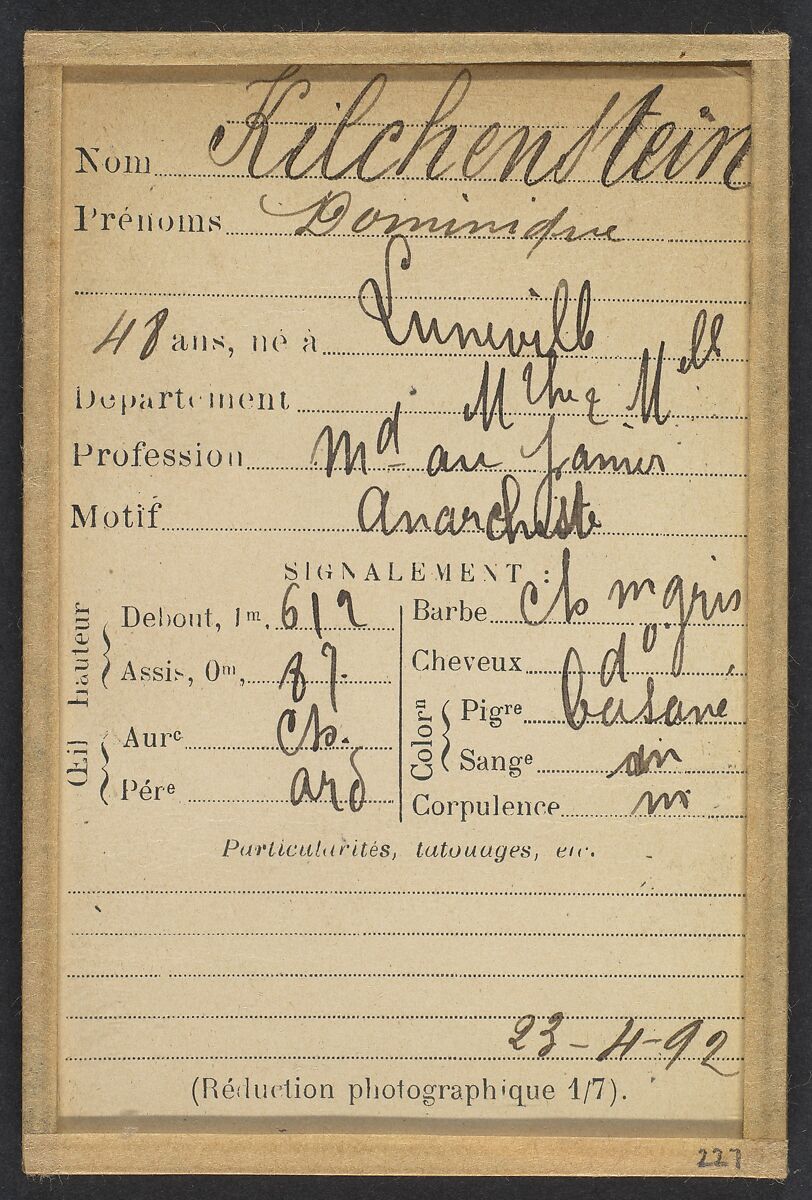 Nom Kilchenstein
Prénoms Dominique
48 ans, né à Lunéville
Département Mthe & Melle
Profession Md au panier
Motif Anarchiste
SIGNALEMENT :
Œil hauteur
Debout, 1m. 612
Assis, 0m, 87.
Aure ch.
Pére ard
Barbe ch m gris
Cheveux do.
Colorn
Pigre basané
Sange
Corpulence
Particularités, tatouages, etc.
23-4-92
(Réduction photographique 1/7).
227